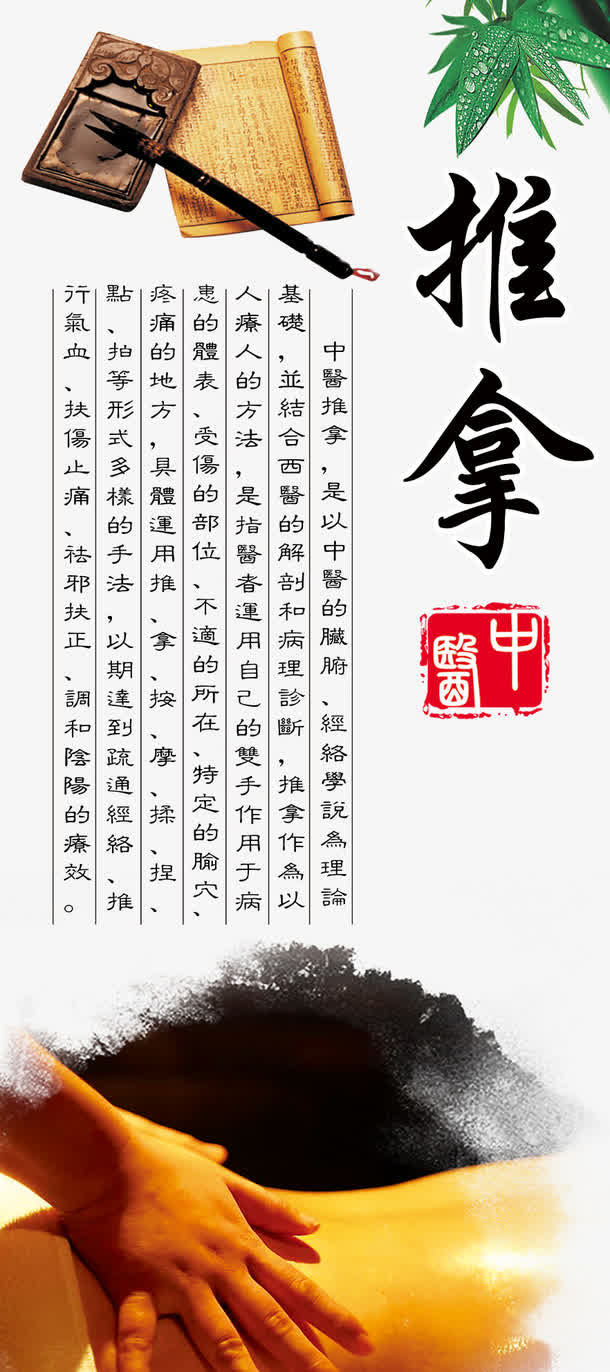 推拿
中醫
中醫推拿，是以中醫的臟腑、經絡學說為理論
基礎，並結合西醫的解剖和病理診斷，推拿作為以
人療人的方法，是指醫者運用自己的雙手作用于病
患的體表、受傷的部位、不適的所在、特定的腧穴、
疼痛的地方，具體運用推、拿、按、摩、揉、捏、
點、拍等形式多樣的手法，以期達到疏通經絡、推
行氣血、扶傷止痛、祛邪扶正、調和陰陽的療效。